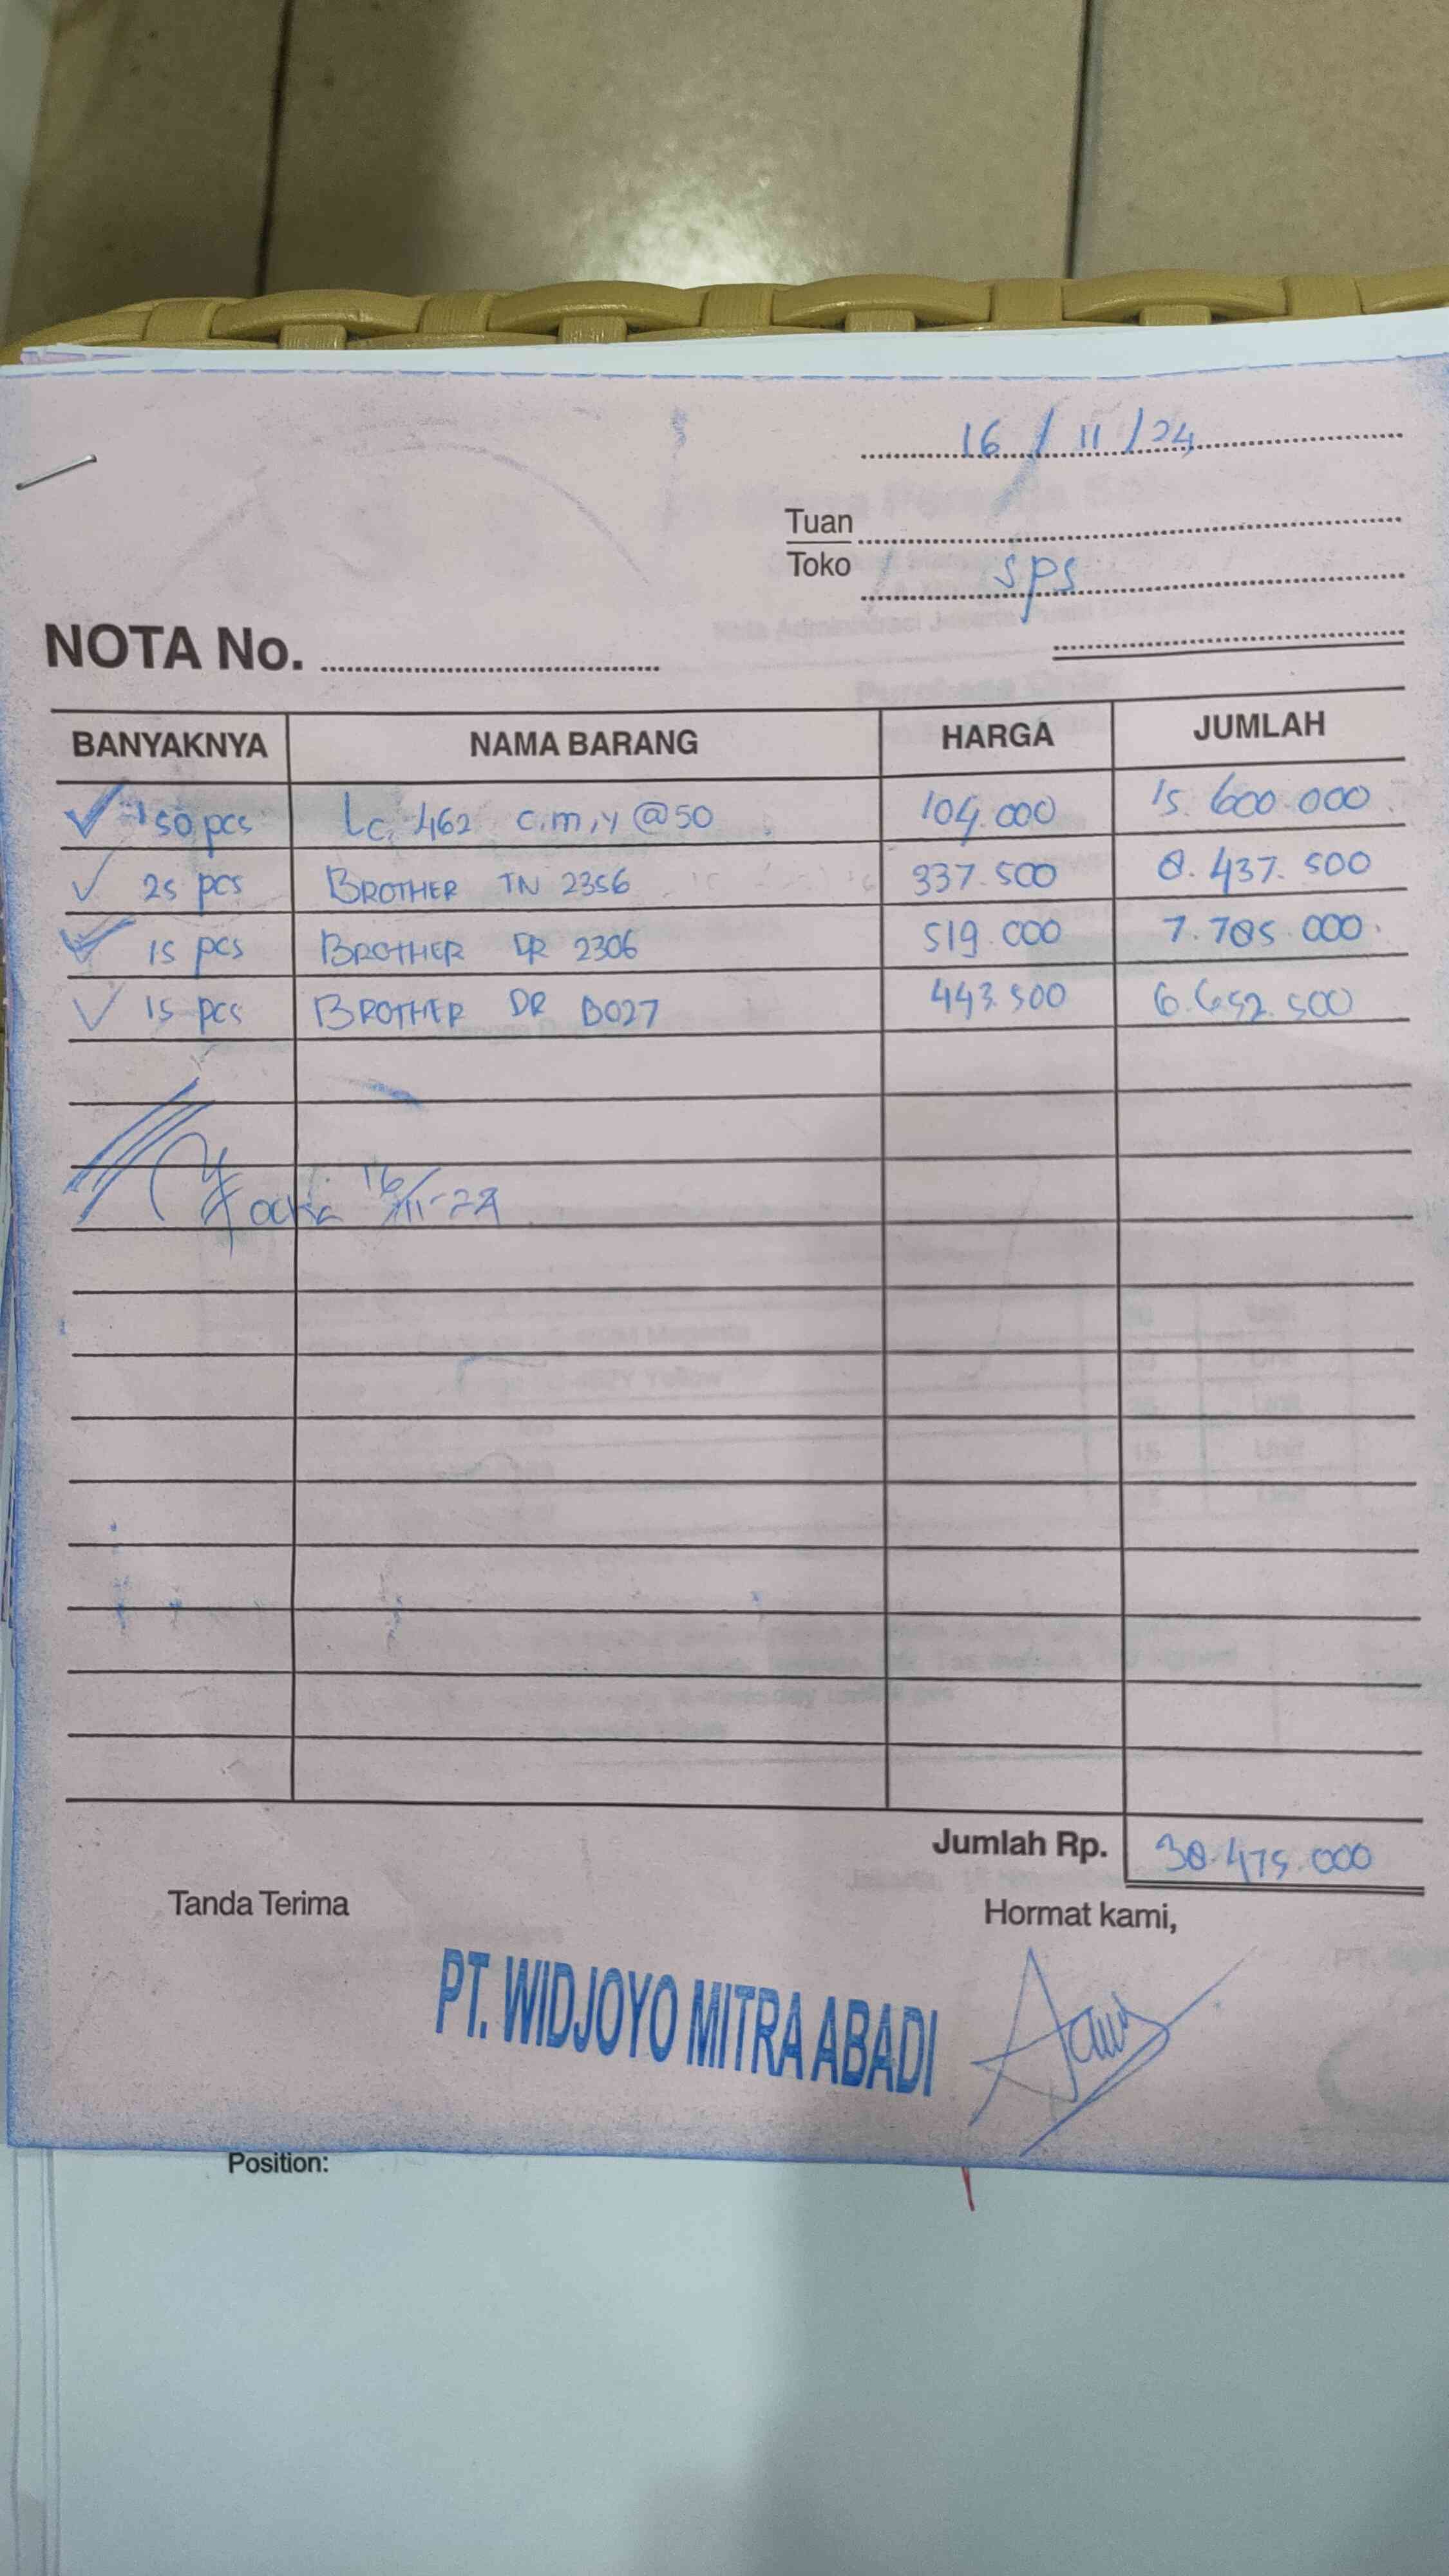 16 / 11 / 24
Tuan
Toko sps
NOTA No.
BANYAKNYA NAMA BARANG HARGA JUMLAH
150 pcs Lc. 462 c.m,y @50 104.000 15.600.000
25 pcs BROTHER TN 2356 337.500 8.437.500
15 pcs BROTHER DR 2306 519.000 7.785.000
15 pcs BROTHER DR B027 443.500 6.652.500
16/11-24
Jumlah Rp. 38.475.000
Tanda Terima Hormat kami,
PT. WIDJOYO MITRA ABADI
Position: